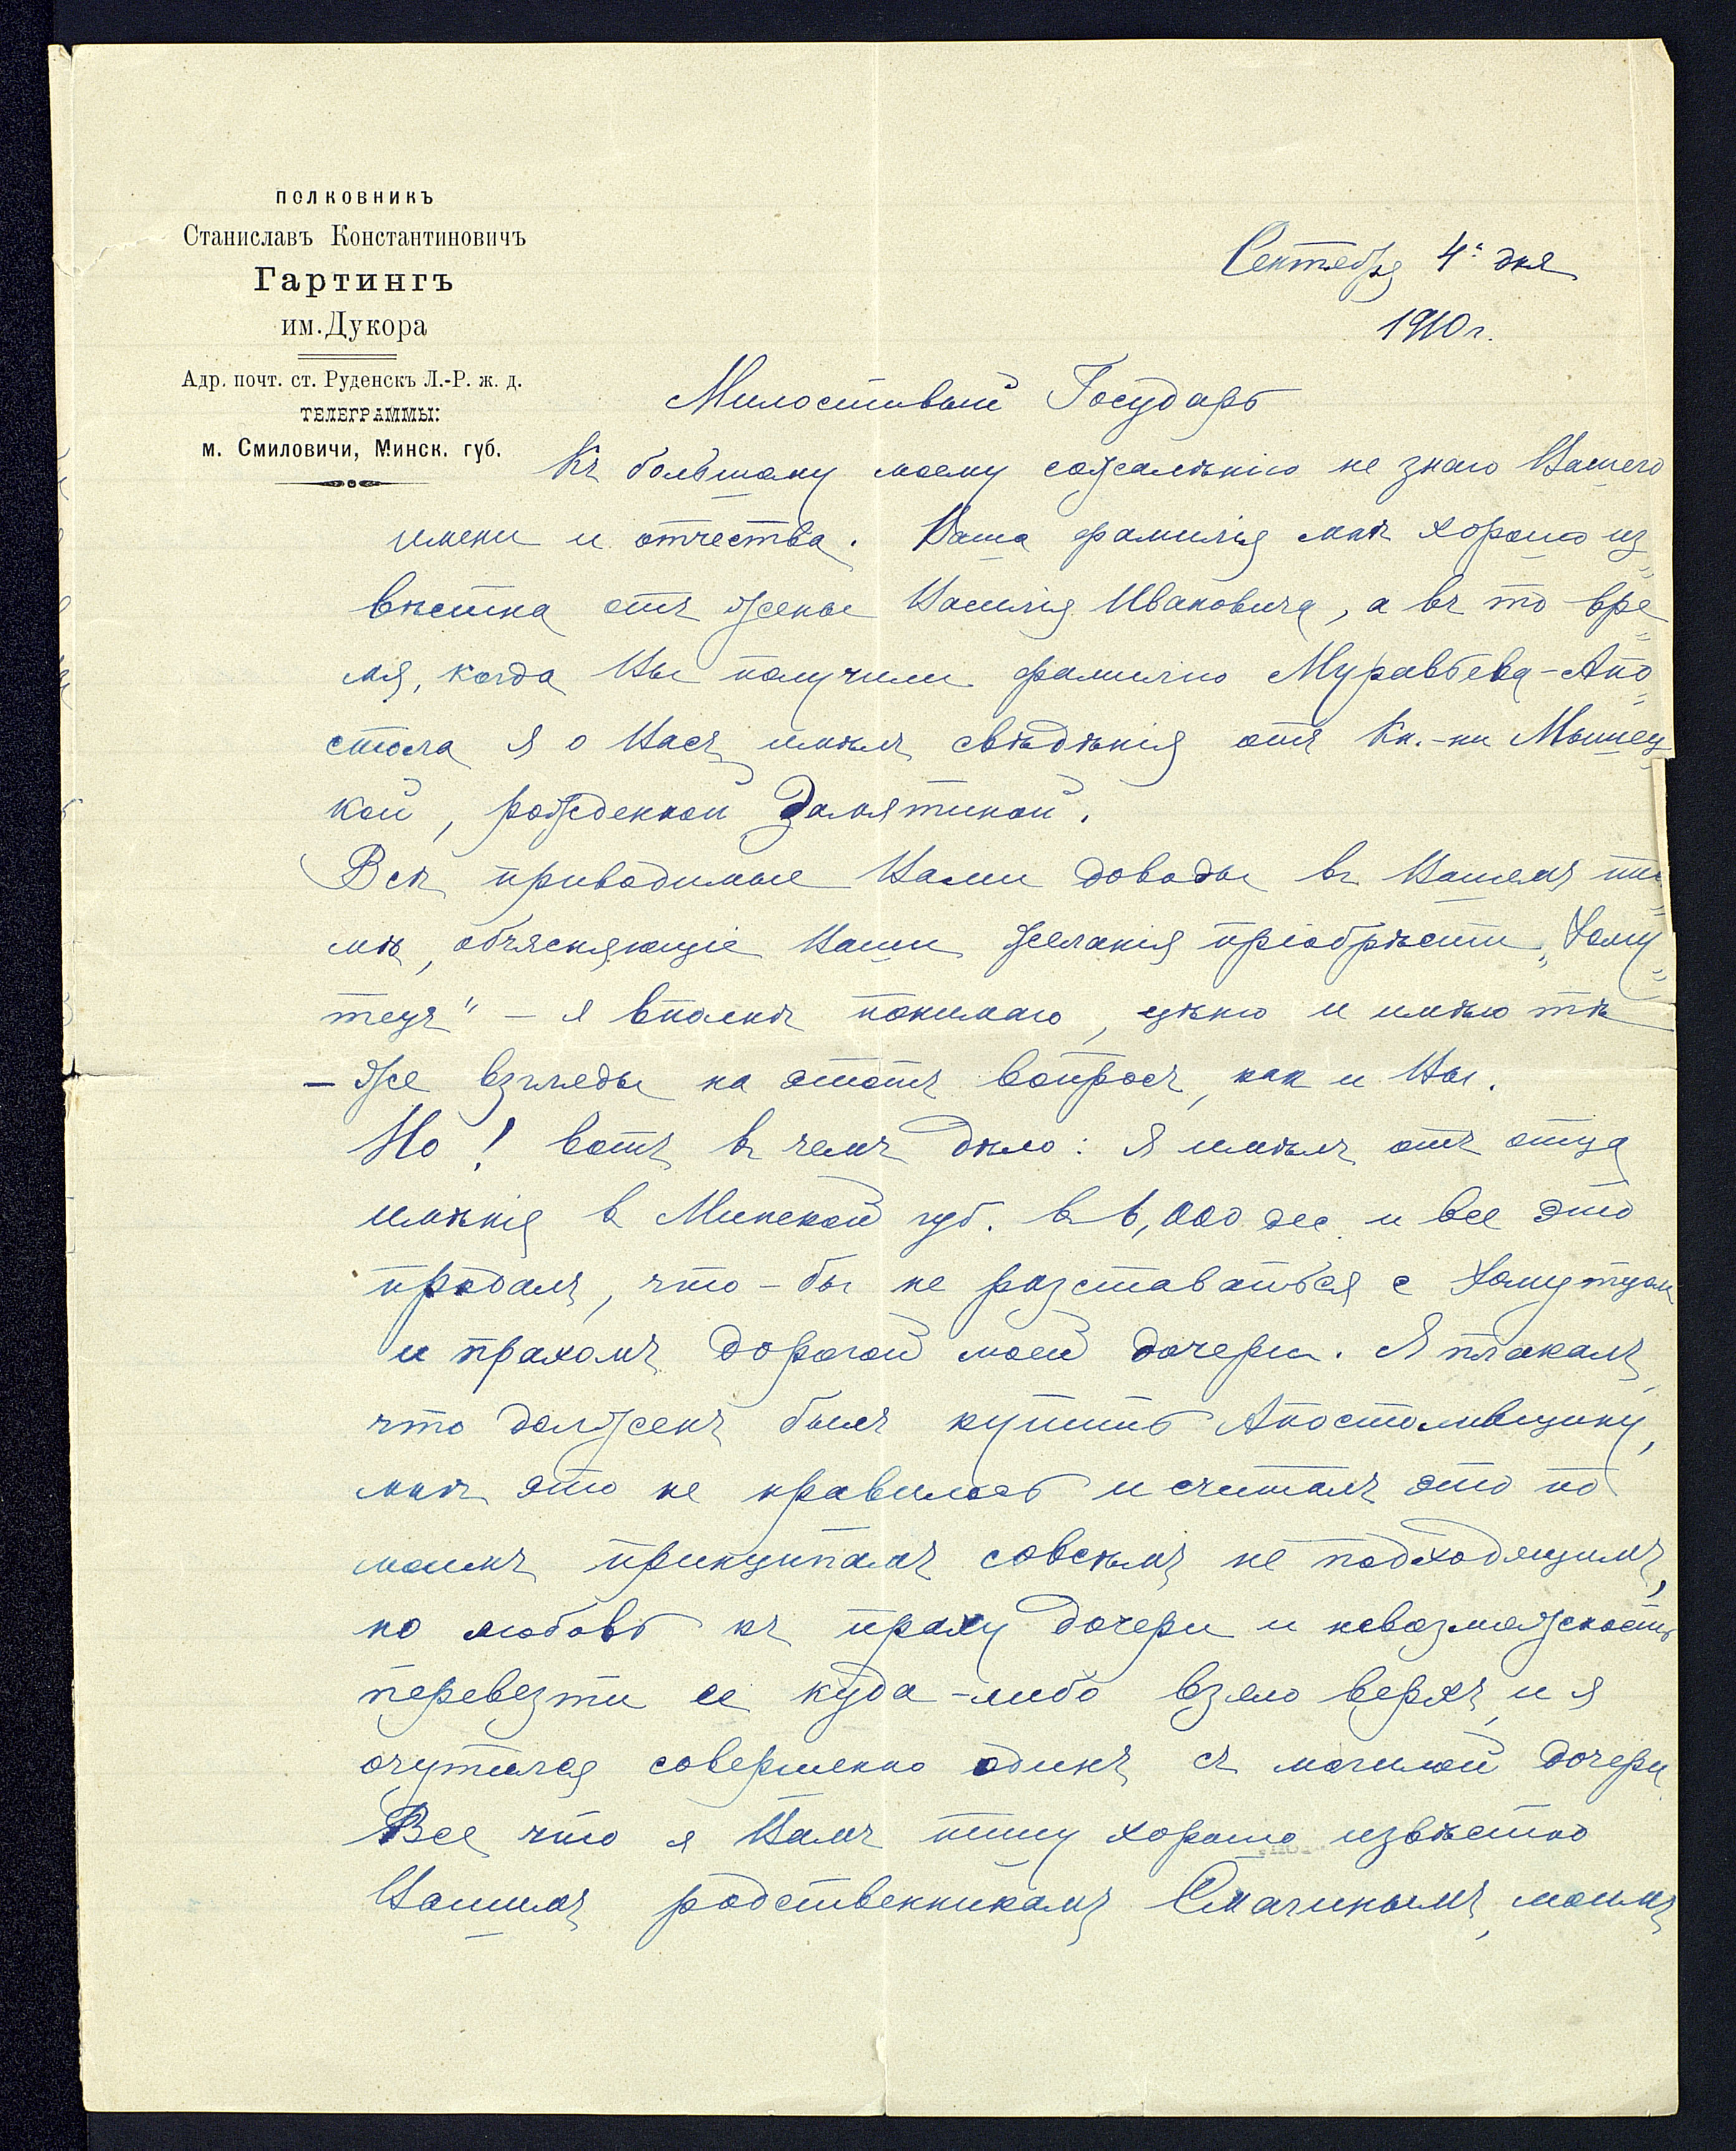 ПОЛКОВНИКЪ
Станиславъ Константиновичъ
Гартингъ
им. Дукора
Адр. почт. ст. Руденскъ Л.-Р. ж. д.
ТЕЛЕГРАММЫ:
м. Смиловичи, Минск. губ.
Сентября 4го дня
1910 г.
Милостивый Государь
Къ большому моему сожалѣнію не знаю Вашего
имени и отчества. Ваша фамилія мнѣ хорошо из
вѣстна отъ жены Василія Ивановича, а въ то вре
мя, когда Вы получили фамилію Муравьева-Апо
стола я о Васъ имѣлъ свѣдѣнія отъ Кн.-ни Мышец
кой, рожденной Замятиной.
Всѣ приводимые Вами доводы въ Вашемъ пис
мѣ, объясняющіе Ваши желанія пріобрѣсти „Хому
тецъ" – я вполнѣ понимаю, цѣню и имѣю тѣ
– же взгляды на этотъ вопросъ, как и Вы.
Но! вотъ въ чемъ дѣло: я имѣлъ отъ отца
имѣнія в Минской губ. въ 6,000 дес. и все это
продалъ, что-бы не разставаться с Хомутцом
и прахомъ дорогой моей дочери. Я плакалъ,
что долженъ былъ купить Апостоливщину,
мнѣ это не нравилось и считалъ это по
моимъ принципамъ совсѣмъ не подходящимъ,
но любовь къ праху дочери и невозможность
перевезти ее куда-либо взяло верхъ, и я
очутился совершенно одинъ съ могилой дочери
Все что я Вамъ пишу хорошо извѣстно
Вашимъ родственникамъ Смагинымъ, моимъ